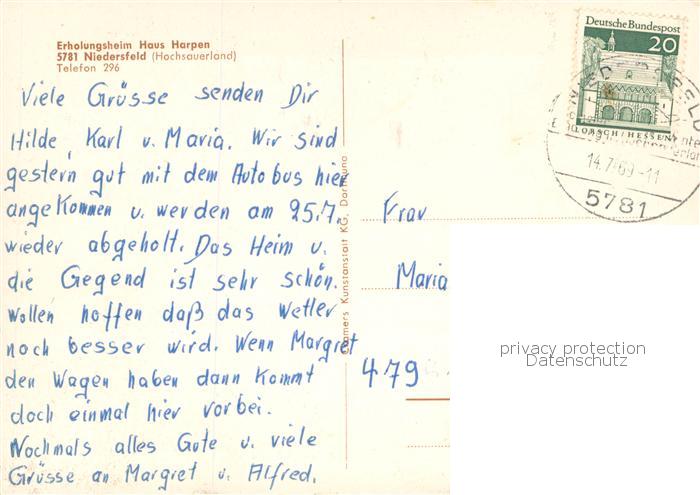 Erholungsheim Haus Harpen
5781 Niedersfeld (Hochsauerland)
Telefon 296
Viele Grüsse senden Dir
Hilde, Karl u. Maria. Wir sind
gestern gut mit dem Autobus hier
angekommen u. werden am 25.7.
wieder abgeholt. Das Heim u.
die Gegend ist sehr schön.
Wollen hoffen daß das Wetter
noch besser wird. Wenn Margret
den Wagen haben dann kommt
doch einmal hier vorbei.
Nochmals alles Gute u. viele
Grüsse an Margret u. Alfred.
Cramers Kunstanstalt KG, Dortmund
Deutsche Bundespost
20
LORSCH/HESSEN
14.7.69-11
5781
Frau
Maria
479
privacy protection
Datenschutz